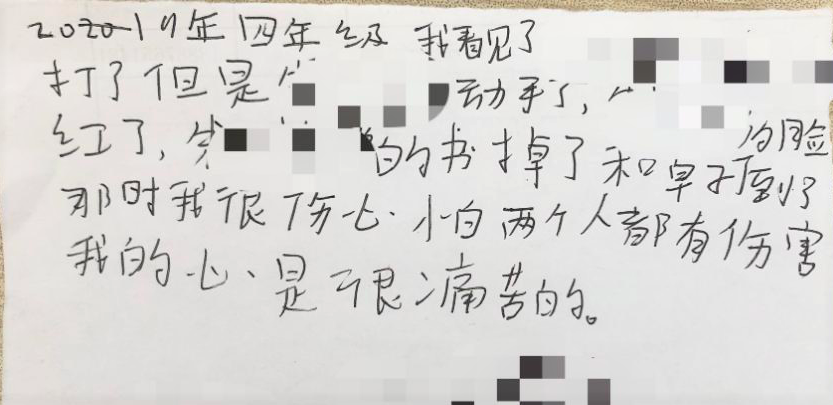 2020-19年四年级 我看见了
打了但是 动手了,
红了, 的书掉了和桌子 的脸
那时我很伤心、小白两个人都有伤害
我的心、是很痛苦的。